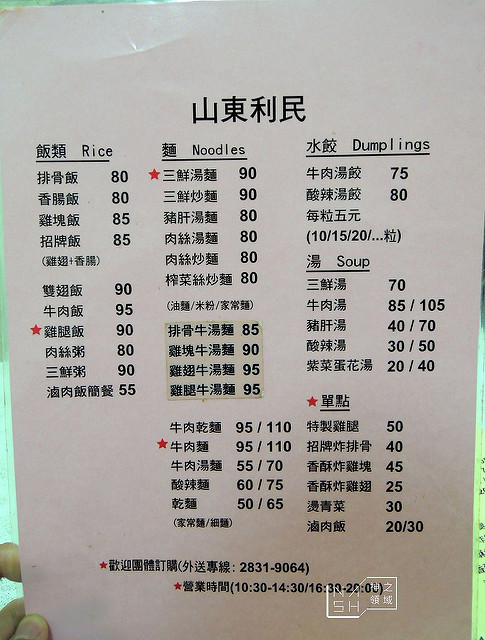 山東利民
飯類 Rice
排骨飯 80
香腸飯 80
雞塊飯 85
招牌飯 85
(雞翅+香腸)
雙翅飯 90
牛肉飯 95
★雞腿飯 90
肉絲粥 80
三鮮粥 90
滷肉飯簡餐 55
麵 Noodles
★三鮮湯麵 90
三鮮炒麵 90
豬肝湯麵 80
肉絲湯麵 80
肉絲炒麵 80
榨菜絲炒麵 80
(油麵/米粉/家常麵)
排骨牛湯麵 85
雞塊牛湯麵 90
雞翅牛湯麵 95
雞腿牛湯麵 95
牛肉乾麵 95 / 110
★牛肉麵 95 / 110
牛肉湯麵 55 / 70
酸辣麵 60 / 75
乾麵 50 / 65
(家常麵/細麵)
水餃 Dumplings
牛肉湯餃 75
酸辣湯餃 80
每粒五元
(10/15/20/...粒)
湯 Soup
三鮮湯 70
牛肉湯 85 / 105
豬肝湯 40 / 70
酸辣湯 30 / 50
紫菜蛋花湯 20 / 40
★單點
特製雞腿 50
招牌炸排骨 40
香酥炸雞塊 45
香酥炸雞翅 25
燙青菜 30
滷肉飯 20/30
★歡迎團體訂購(外送專線: 2831-9064)
★營業時間(10:30-14:30/16:30-20:00)
之
領域
SH